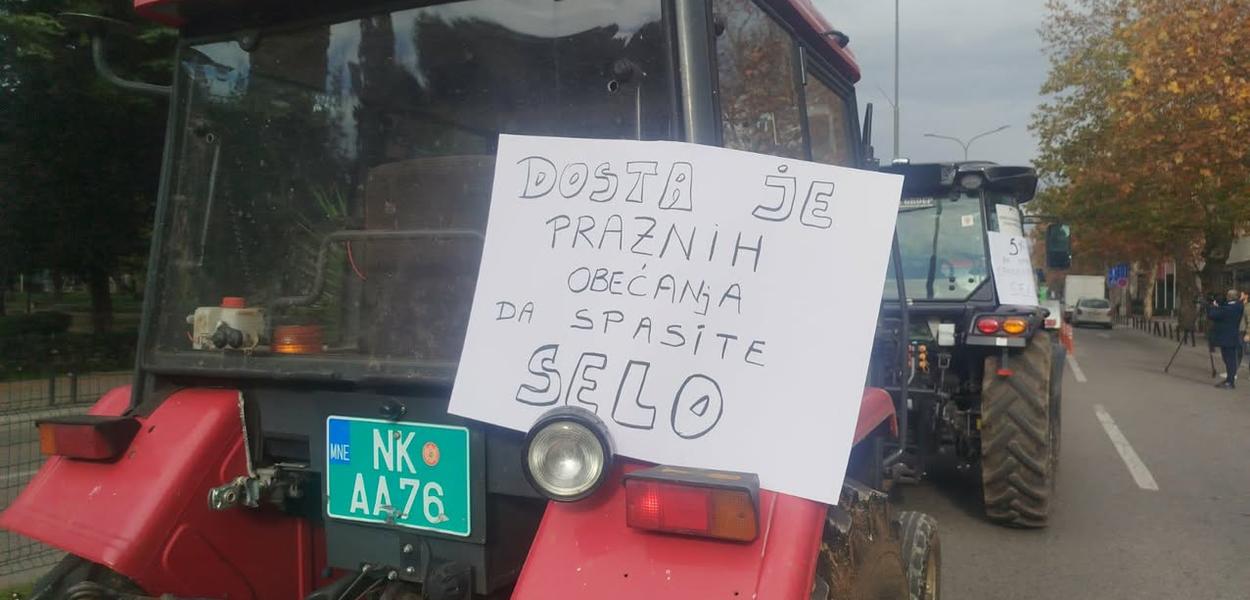 DOSTA JE
PRAZNIH
OBEĆANjA
DA SPASITE
SELO
MNE
NK
AA76